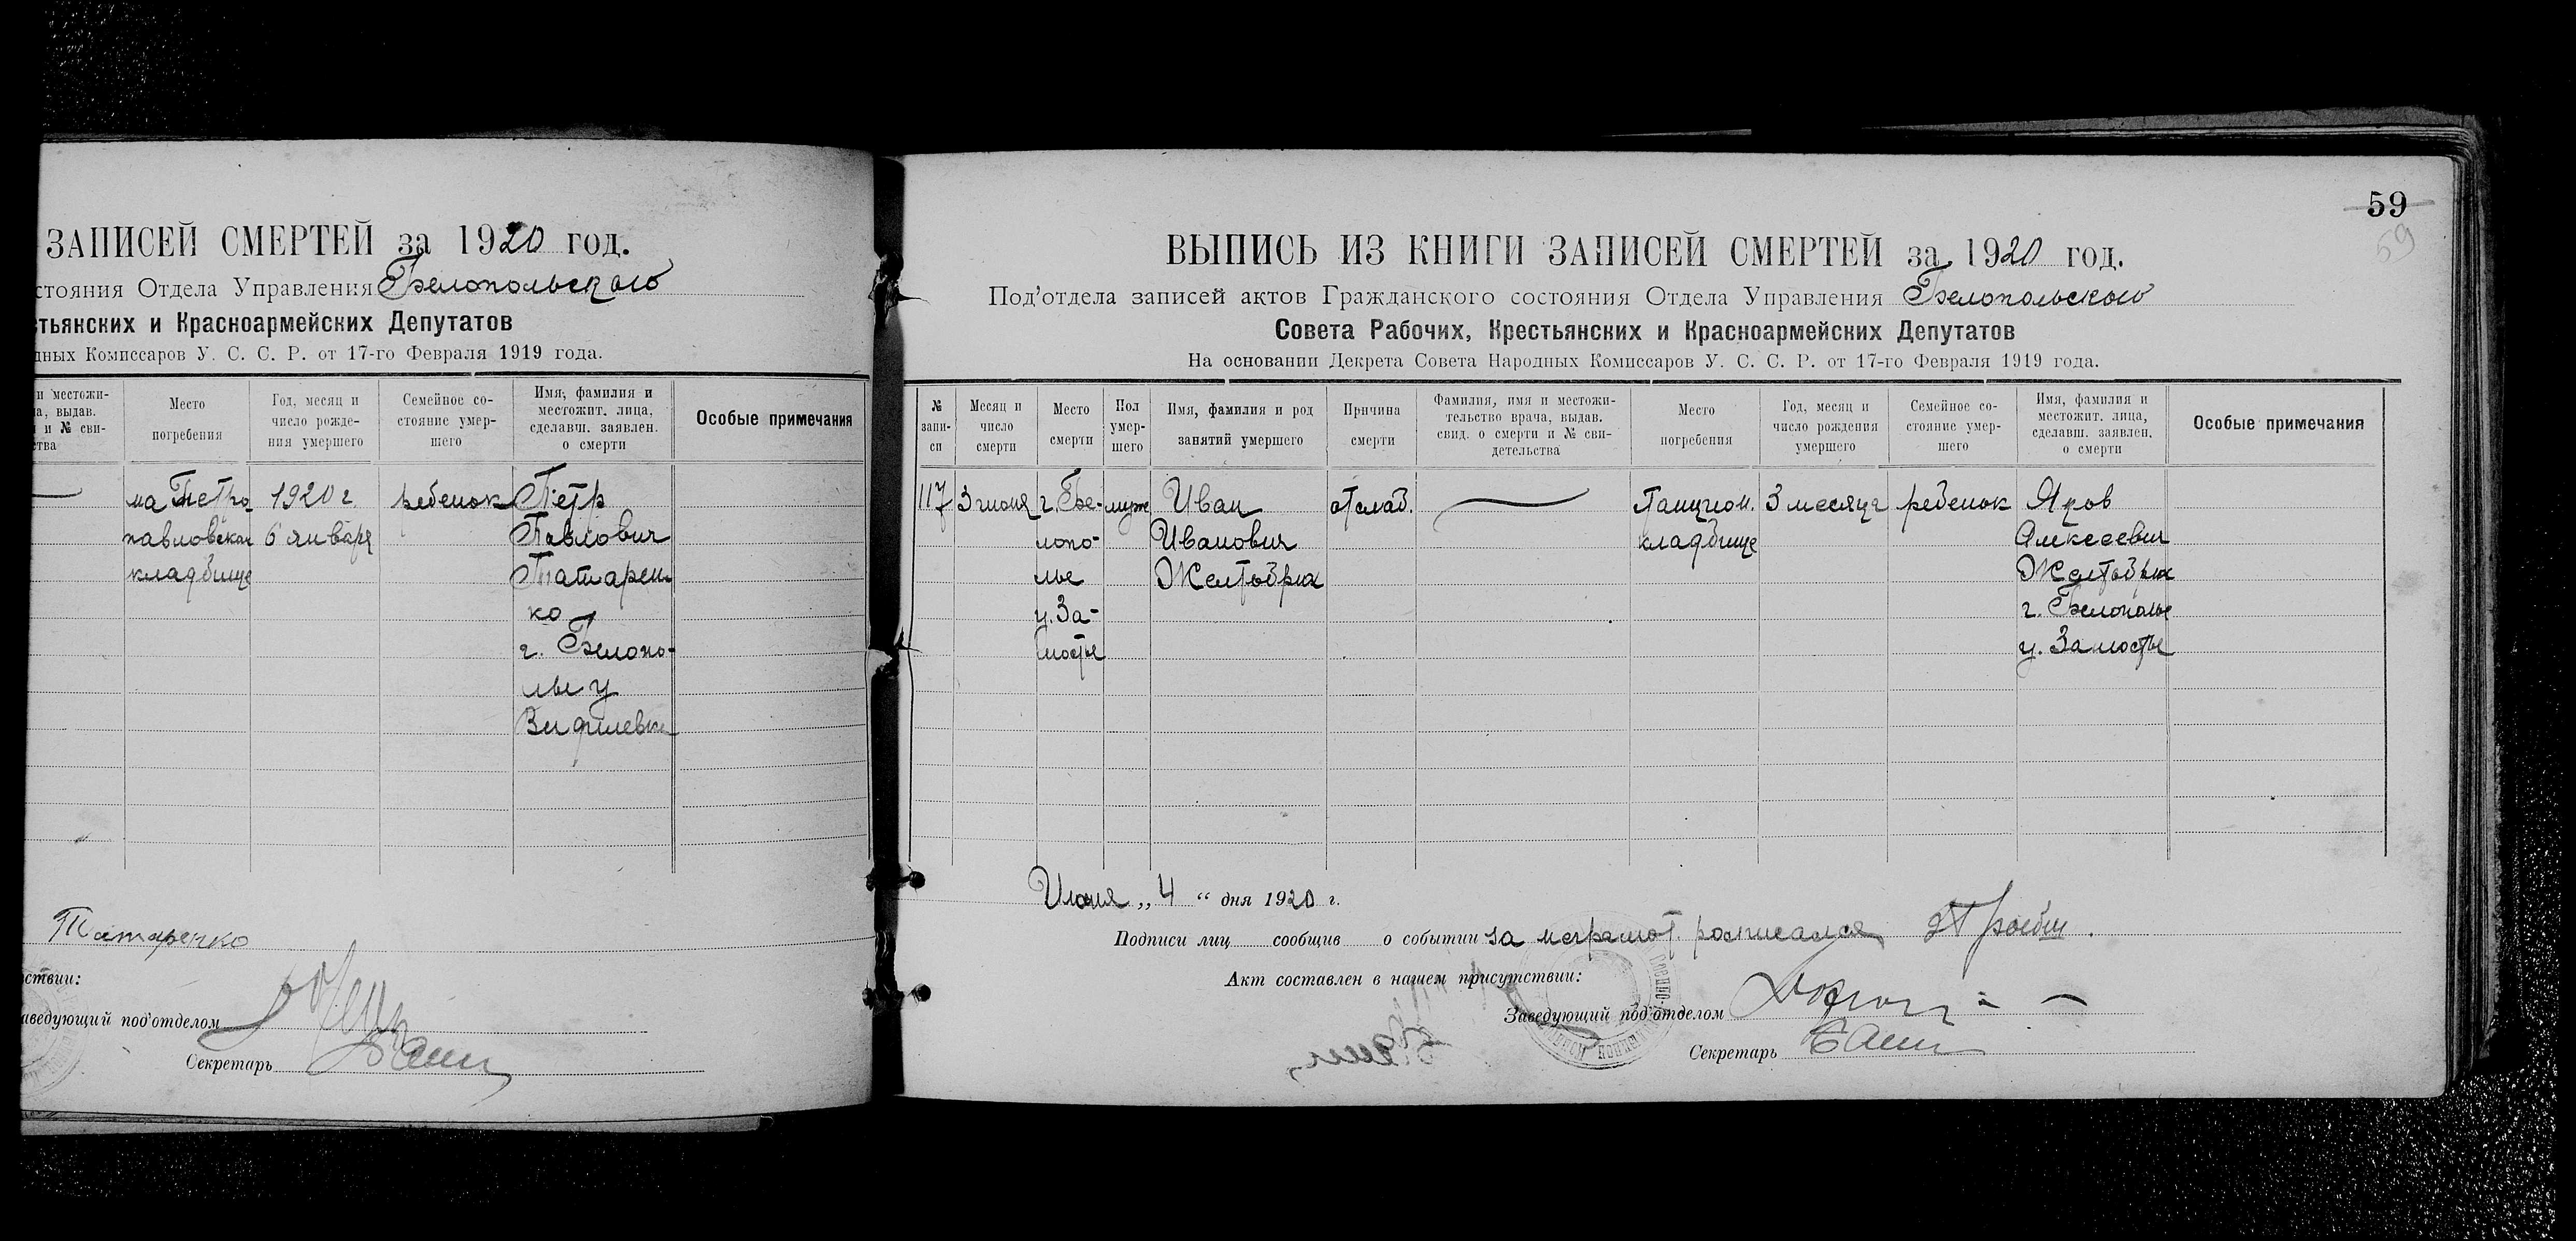 ЗАПИСЕЙ СМЕРТЕЙ за 1920 год.
стояния Отдела Управления Белопольского
стьянских и Красноармейских Депутатов
дных Комиссаров У. С. С. Р. от 17-го Февраля 1919 года.
и местожи-
а, выдав.
и № сви-
ства
Место
погребения
Год, месяц и
число рожде-
ния умершего
Семейное со-
стояние умер-
шего
Имя, фамилия и
местожит. лица,
сделавш. заявлен.
о смерти
Особые примечания
на Петро
павловская
кладбище
1920 г.
6 января
ребенок
Петр
Павлович
Татарен
ко
г. Белопо-
лье у
Татаренко
ствии:
аведующий под'отделом
Секретарь
59
59
ВЫПИСЬ ИЗ КНИГИ ЗАПИСЕЙ СМЕРТЕЙ за 1920 год.
Под'отдела записей актов Гражданского состояния Отдела Управления Белопольского
Совета Рабочих, Крестьянских и Красноармейских Депутатов
На основании Декрета Совета Народных Комиссаров У. С. С. Р. от 17-го Февраля 1919 года.
№
запи-
си
Месяц и
число
смерти
Место
смерти
Пол
умер-
шего
Имя, фамилия и род
занятий умершего
Причина
смерти
Фамилия, имя и местожи-
тельство врача, выдав.
свид. о смерти и № сви-
детельства
Место
погребения
Год, месяц и
число рождения
умершего
Семейное со-
стояние умер-
шего
Имя, фамилия и
местожит. лица,
сделавш. заявлен.
о смерти
Особые примечания
117
3 июня
г. Бе-
лопо-
лье
у. За-
мостье
муж
Иван
Иванович
Желтобрюх
от слаб.
кладбище
3 месяца
ребенок
Яков
Алексеевич
Желтобрюх
г. Белополье
у. Замостье
Июня „ 4 “ дня 1920 г.
Подписи лиц сообщив о событии за неграмот. росписался
Акт составлен в нашем присутствии:
Заведующий под'отделом
Секретарь